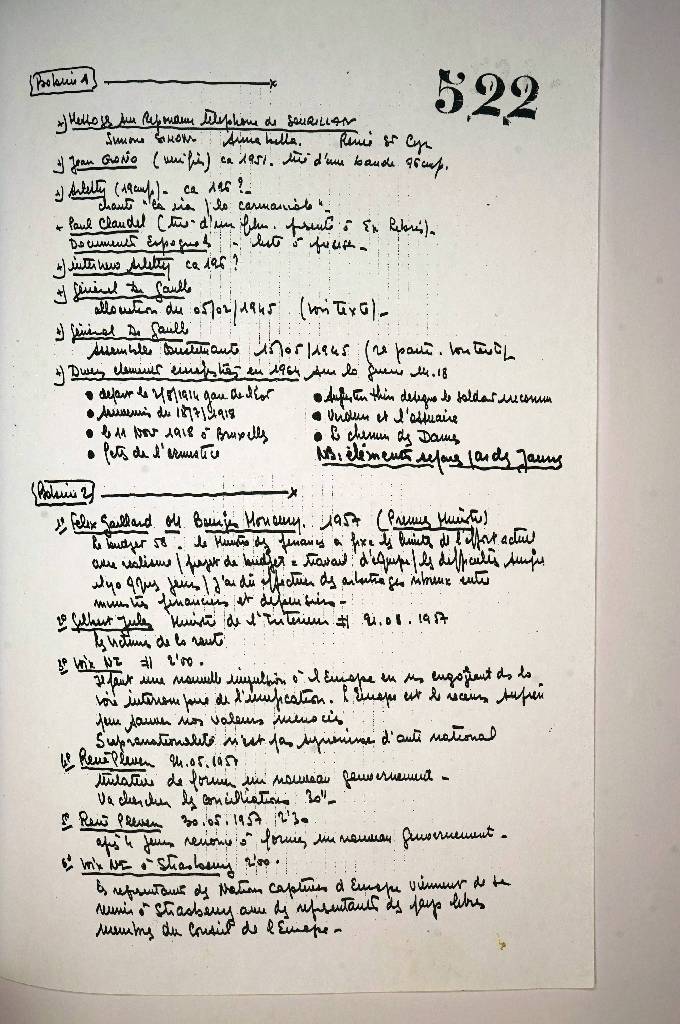 Bobine 1
522
+) Message sur Repondeur telephone de
Simone SIMON Annabella. Renée St Cyr
+) Jean GIONO (verifier) ca 1951. tiré d'une bande 96cm/s.
+) Arletty (19cm/s) - ca 196 ? -
chante "ca ira / la carmagnole" -
+ Paul Claudel (tiré d'un film. presenté à
Documents Espagnols - liste à preciser -
+) interview Arletty ca 196 ?
+) General De Gaulle
allocution du 05/02/1945 (voir texte) -
+) General De Gaulle
Assemblée Constituante 15/05/1945 (2e partie. voir texte)
+) Divers elements enregistrés en 1964 sur la guerre 14.18
• depart le 2/8/1914 gare de l'Est
• souvenir du 18/7/1918
• le 11 Nov 1918 à Bruxelles
• fete de l'armistice
• Augustin Thin designe le soldat inconnu
• Verdun et l'ossuaire
• le chemin des Dames
NB: éléments separés par des Jaunes
Bobine 2
1° Felix Gaillard ou Bourgès Maunoury. 1957 (Premier Ministre)
le budget 58. le Ministre des finances a fixé les limites de l'effort actuel
avec realisme / projet de budget = travail d'equipe / les difficultés
il y a qques jours / j'ai dû effectuer des arbitrages entre
ministres financiers et depensiers -
2° Gilbert Jules Ministre de l'Interieur # 21.08.1957
les victimes de la route
3° Voix NI # 2'00.
Il faut une nouvelle impulsion à l'Europe en nous engageant ds la
voie de l'unification. L'Europe est le recours supreme
pour sauver nos valeurs menacées
Supranationalité n'est pas synonyme d'anti national
4° René Pleven 24.05.1957
tentative de former un nouveau gouvernement -
Va chercher les conciliations 30" -
5° René Pleven 30.05.1957 2'30
après 4 jours renonce à former un nouveau gouvernement -
6° Voix NI à Strasbourg 2'00.
les representants des Nations captives d'Europe viennent de se
reunir à Strasbourg avec des representants des pays libres
membres du Conseil de l'Europe -